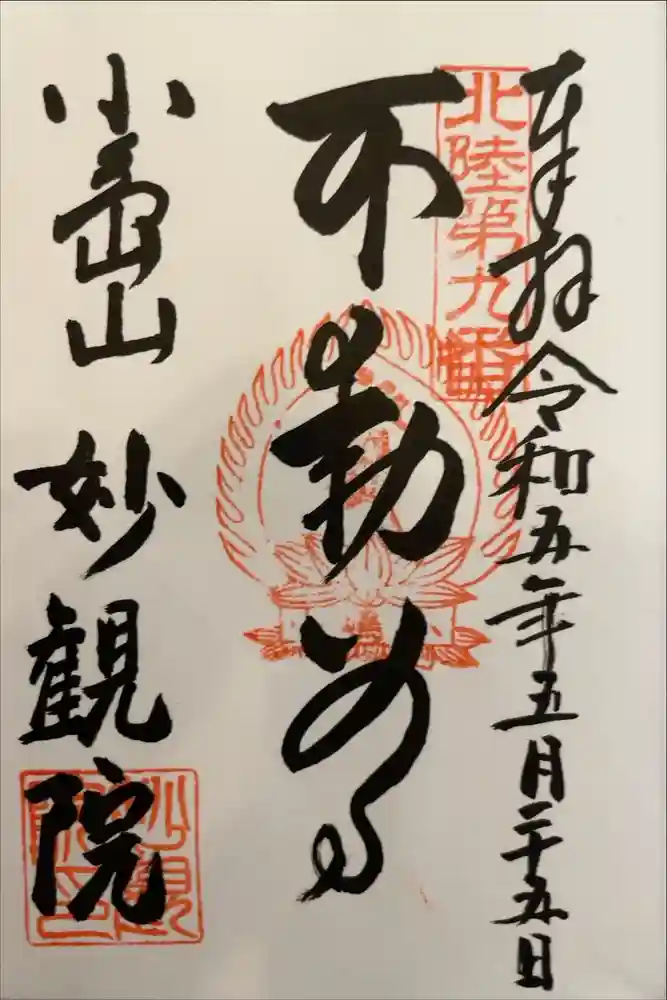 奉拝 令和五年五月二十五日
北陸第九番
不動尊
小嶋山 妙観院
妙観院印